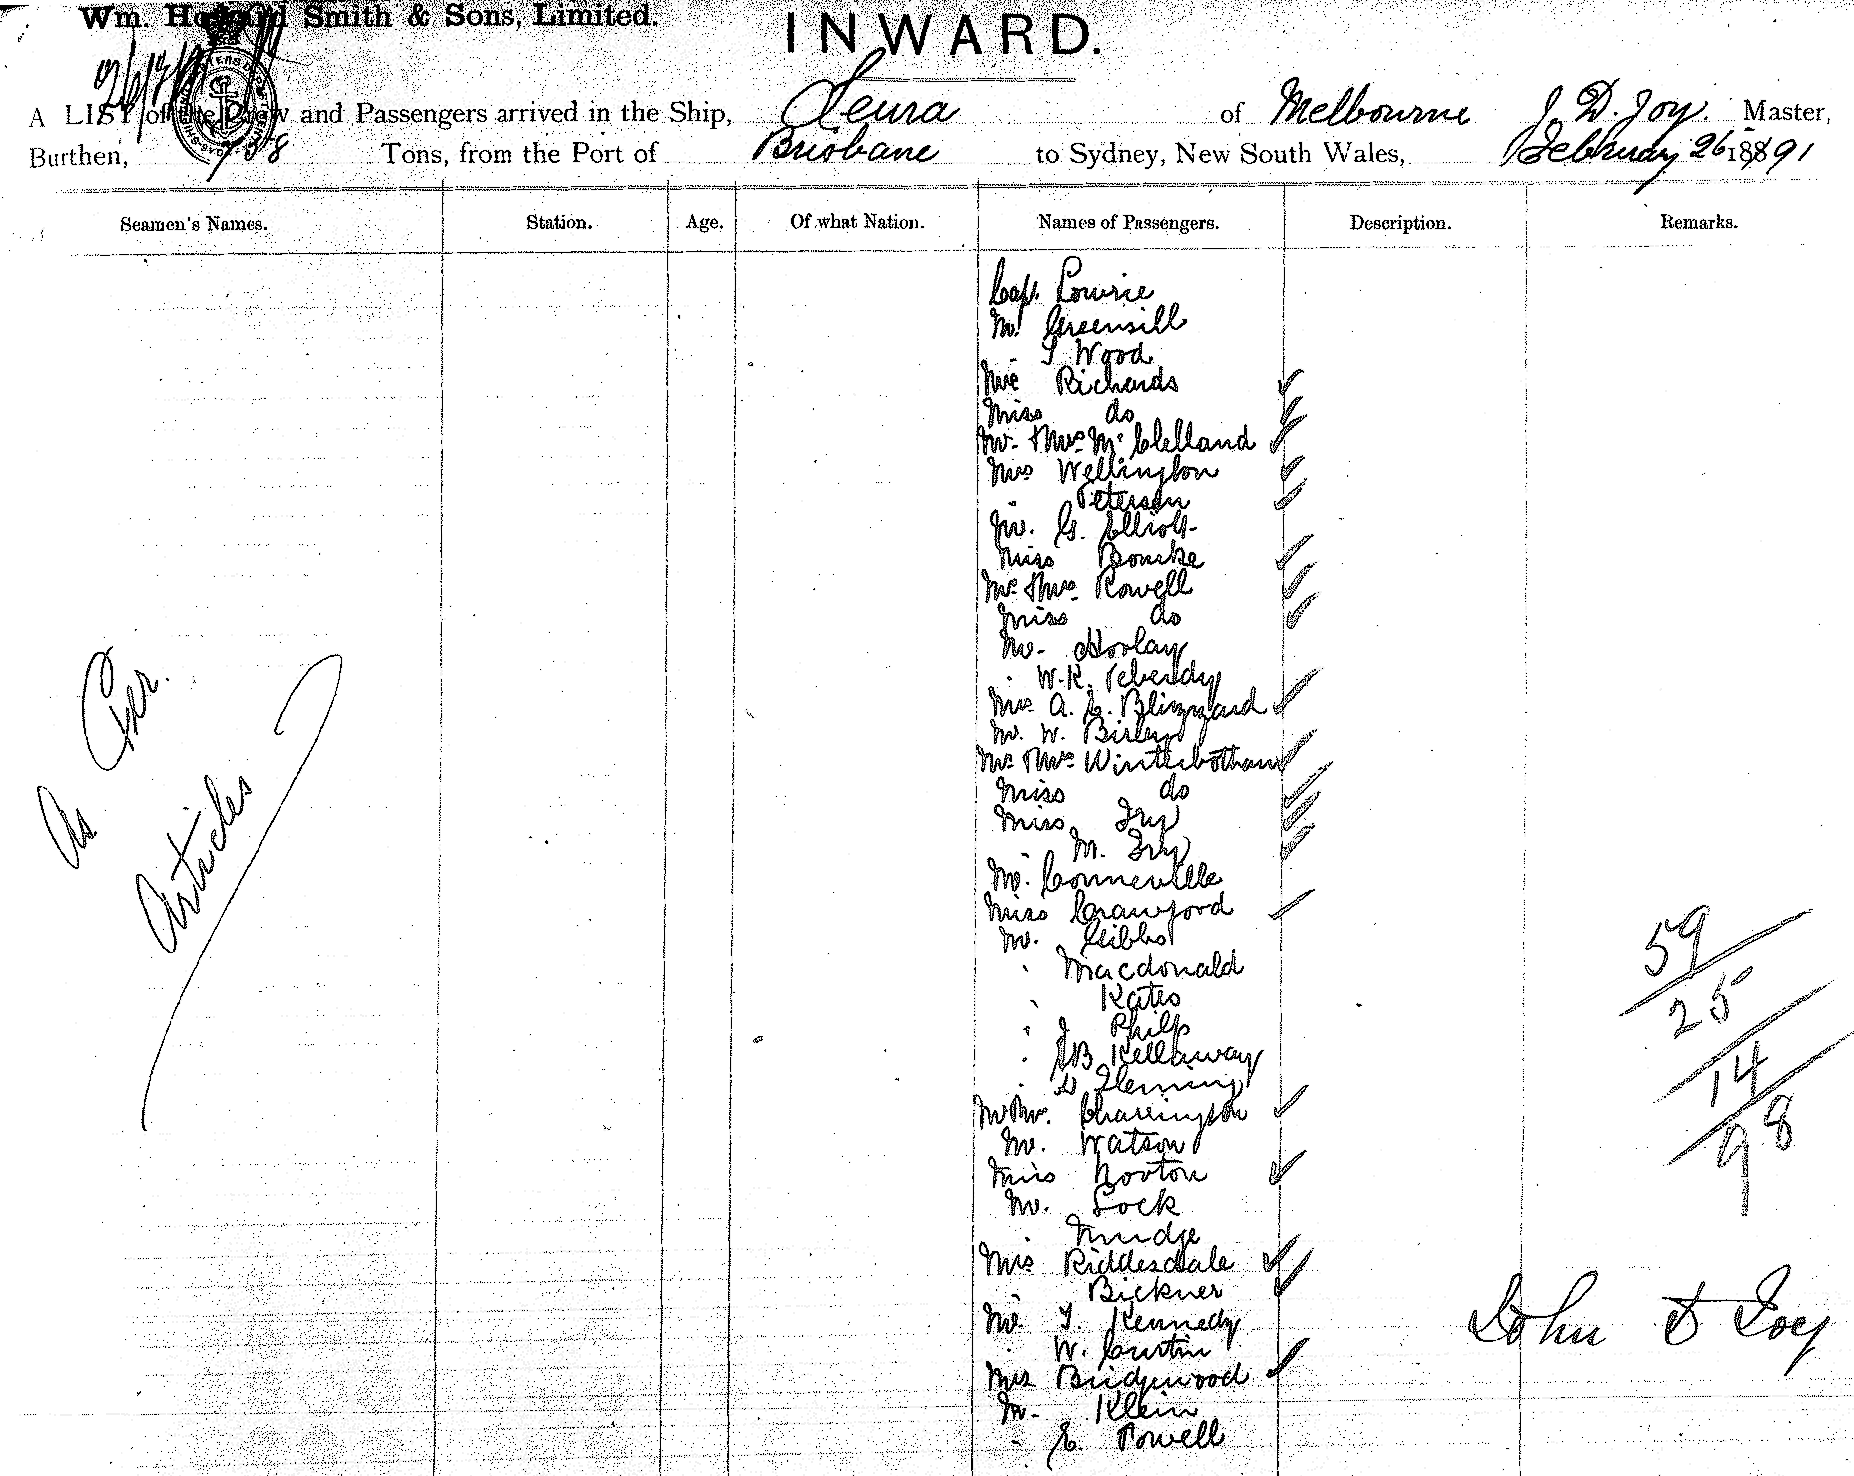 Wm. Howard Smith & Sons, Limited.
INWARD.
A LIST of the Crew and Passengers arrived in the Ship, Leura of Melbourne J. D. Joy. Master,
Burthen, Tons, from the Port of Brisbane to Sydney, New South Wales, February 26 1891
Seamen's Names. Station. Age. Of what Nation. Names of Passengers. Description. Remarks.
Cap. Lowrie
Mr. Greensill
" Wood
Mrs Richards
Miss do
Mr. & Mrs McClelland
Mrs Wellington
" Petersen
Mr. G. Elliott
Miss Bourke
Mr & Mrs Rowell
Miss do
Mr.
" W. R.
Mrs A. E. Blizzard
Mr. W.
Mr & Mrs Winterbotham
Miss do
Miss Fry
" M. Fry
Mr. Conneville
Miss Crawford
Mr. Gibbs
" Macdonald
" Kates
" J Philp
" Kellaway
" D Fleming
Mr Mrs. Charrington
Mr. Watson
Miss Norton
Mr. Lock
" Mudge
Mrs Riddesdale
" Bickner
Mr. T. Kennedy
" W. Curtin
Mrs Bridgwood
Mr. Klein
" E. Powell
As Per
Articles
59
25
14
98
John D Joy